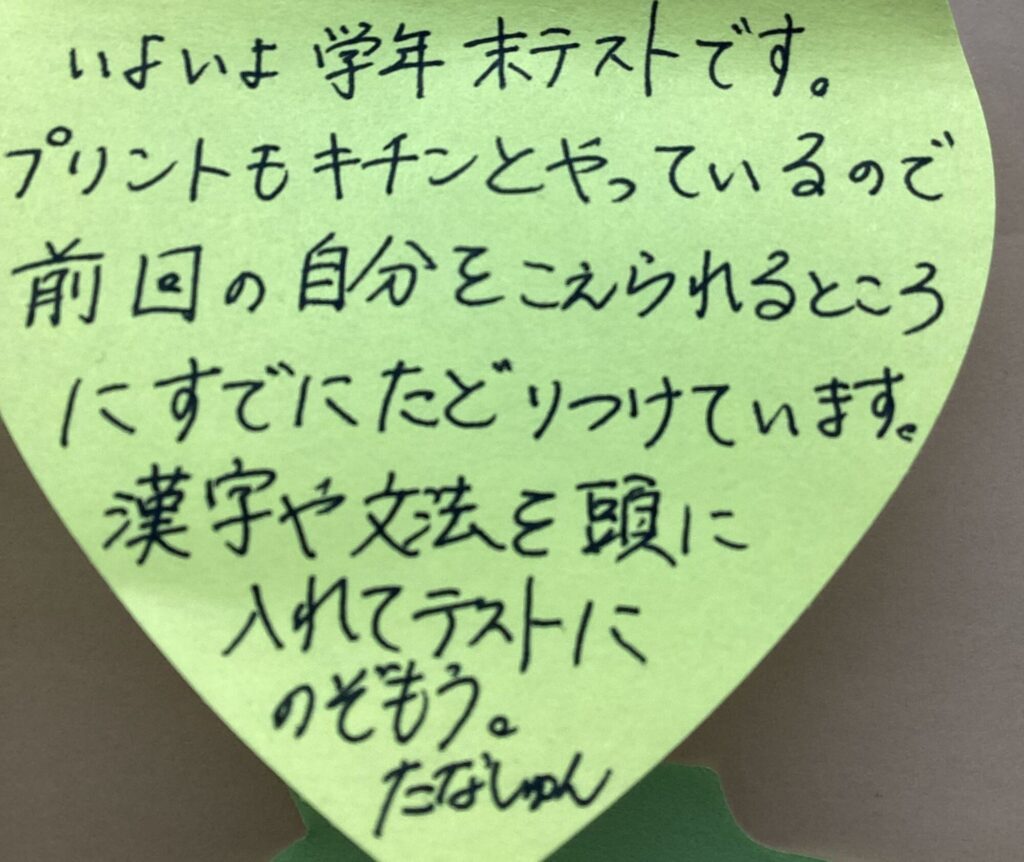 いよいよ学年末テストです。
プリントもキチンとやっているので
前回の自分をこえられるところ
にすでにたどりつけています。
漢字や文法を頭に
入れてテストに
のぞもう。
たなしゅん